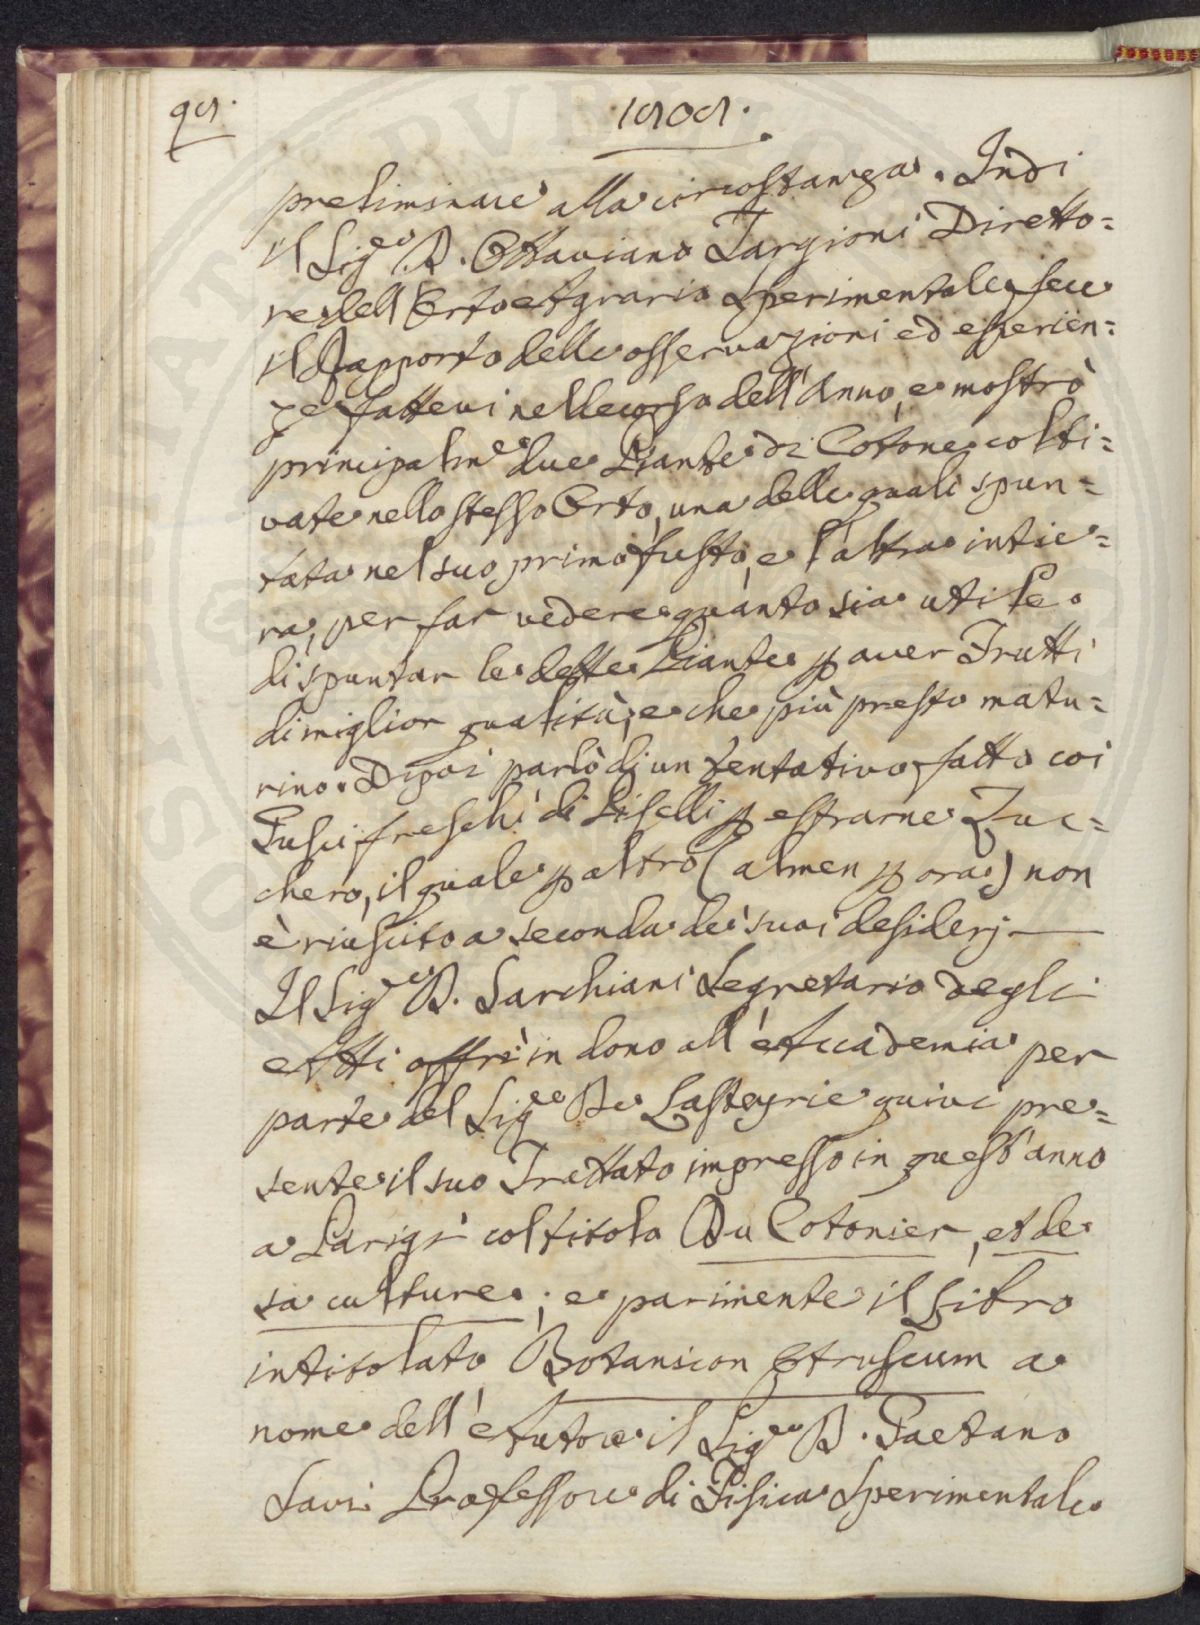 98.
1808.
preliminare alla circostanza. Indi
il Sig.re D. Ottaviano Targioni Diretto=
re dell'Orto Agrario Sperimentale fece
il Rapporto delle osservazioni ed esperien=
ze fattevi nelle corso dell'Anno, e mostrò
principalm.e due Piante di Cotone colti=
vate nello stesso Orto, una delle quali spun=
tata nel suo primo fusto, e l'altra intie=
ra, per far vedere quanto sia utile
di spuntar le dette Piante p aver Frutti
di miglior qualità, e che più presto matu=
rino. Dipoi parlò di un tentativo fatto coi
Gusci freschi di Piselli p estrarne Zuc=
chero, il quale p altro (almen p ora) non
è riuscito a seconda de' suoi desiderj —
Il Sig.re D. Sarchiani Segretario degli
Atti offrì in dono all'Accademia per
parte del Sig.re De Lasteyrie quivi pre=
sente il suo Trattato impresso in quest'anno
a Parigi col titolo Du Cotonier, et de
sa culture; e parimente il Libro
intitolato Botanicon Etruscum a
nome dell'Autore il Sig.re D. Gaetano
Savi Professore di Fisica Sperimentale